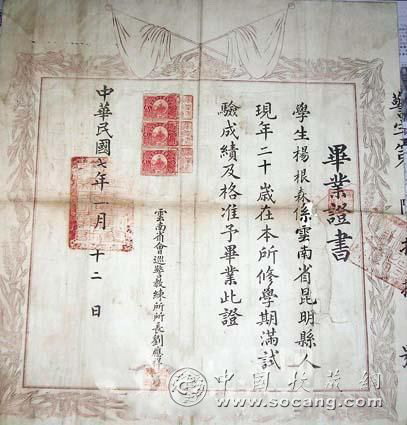 畢業證書
學生楊根森係雲南省昆明縣人
現年二十歲在本所修學期滿試
驗成績及格准予畢業此證
雲南省會巡警教練所所長劉應祥
中華民國七年一月十二日
中国收藏網
www.socang.com